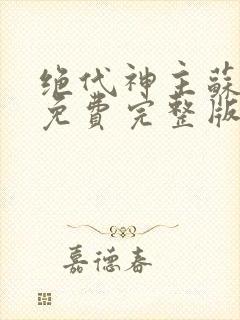 绝代神主蘇
免費完整版
嘉德春